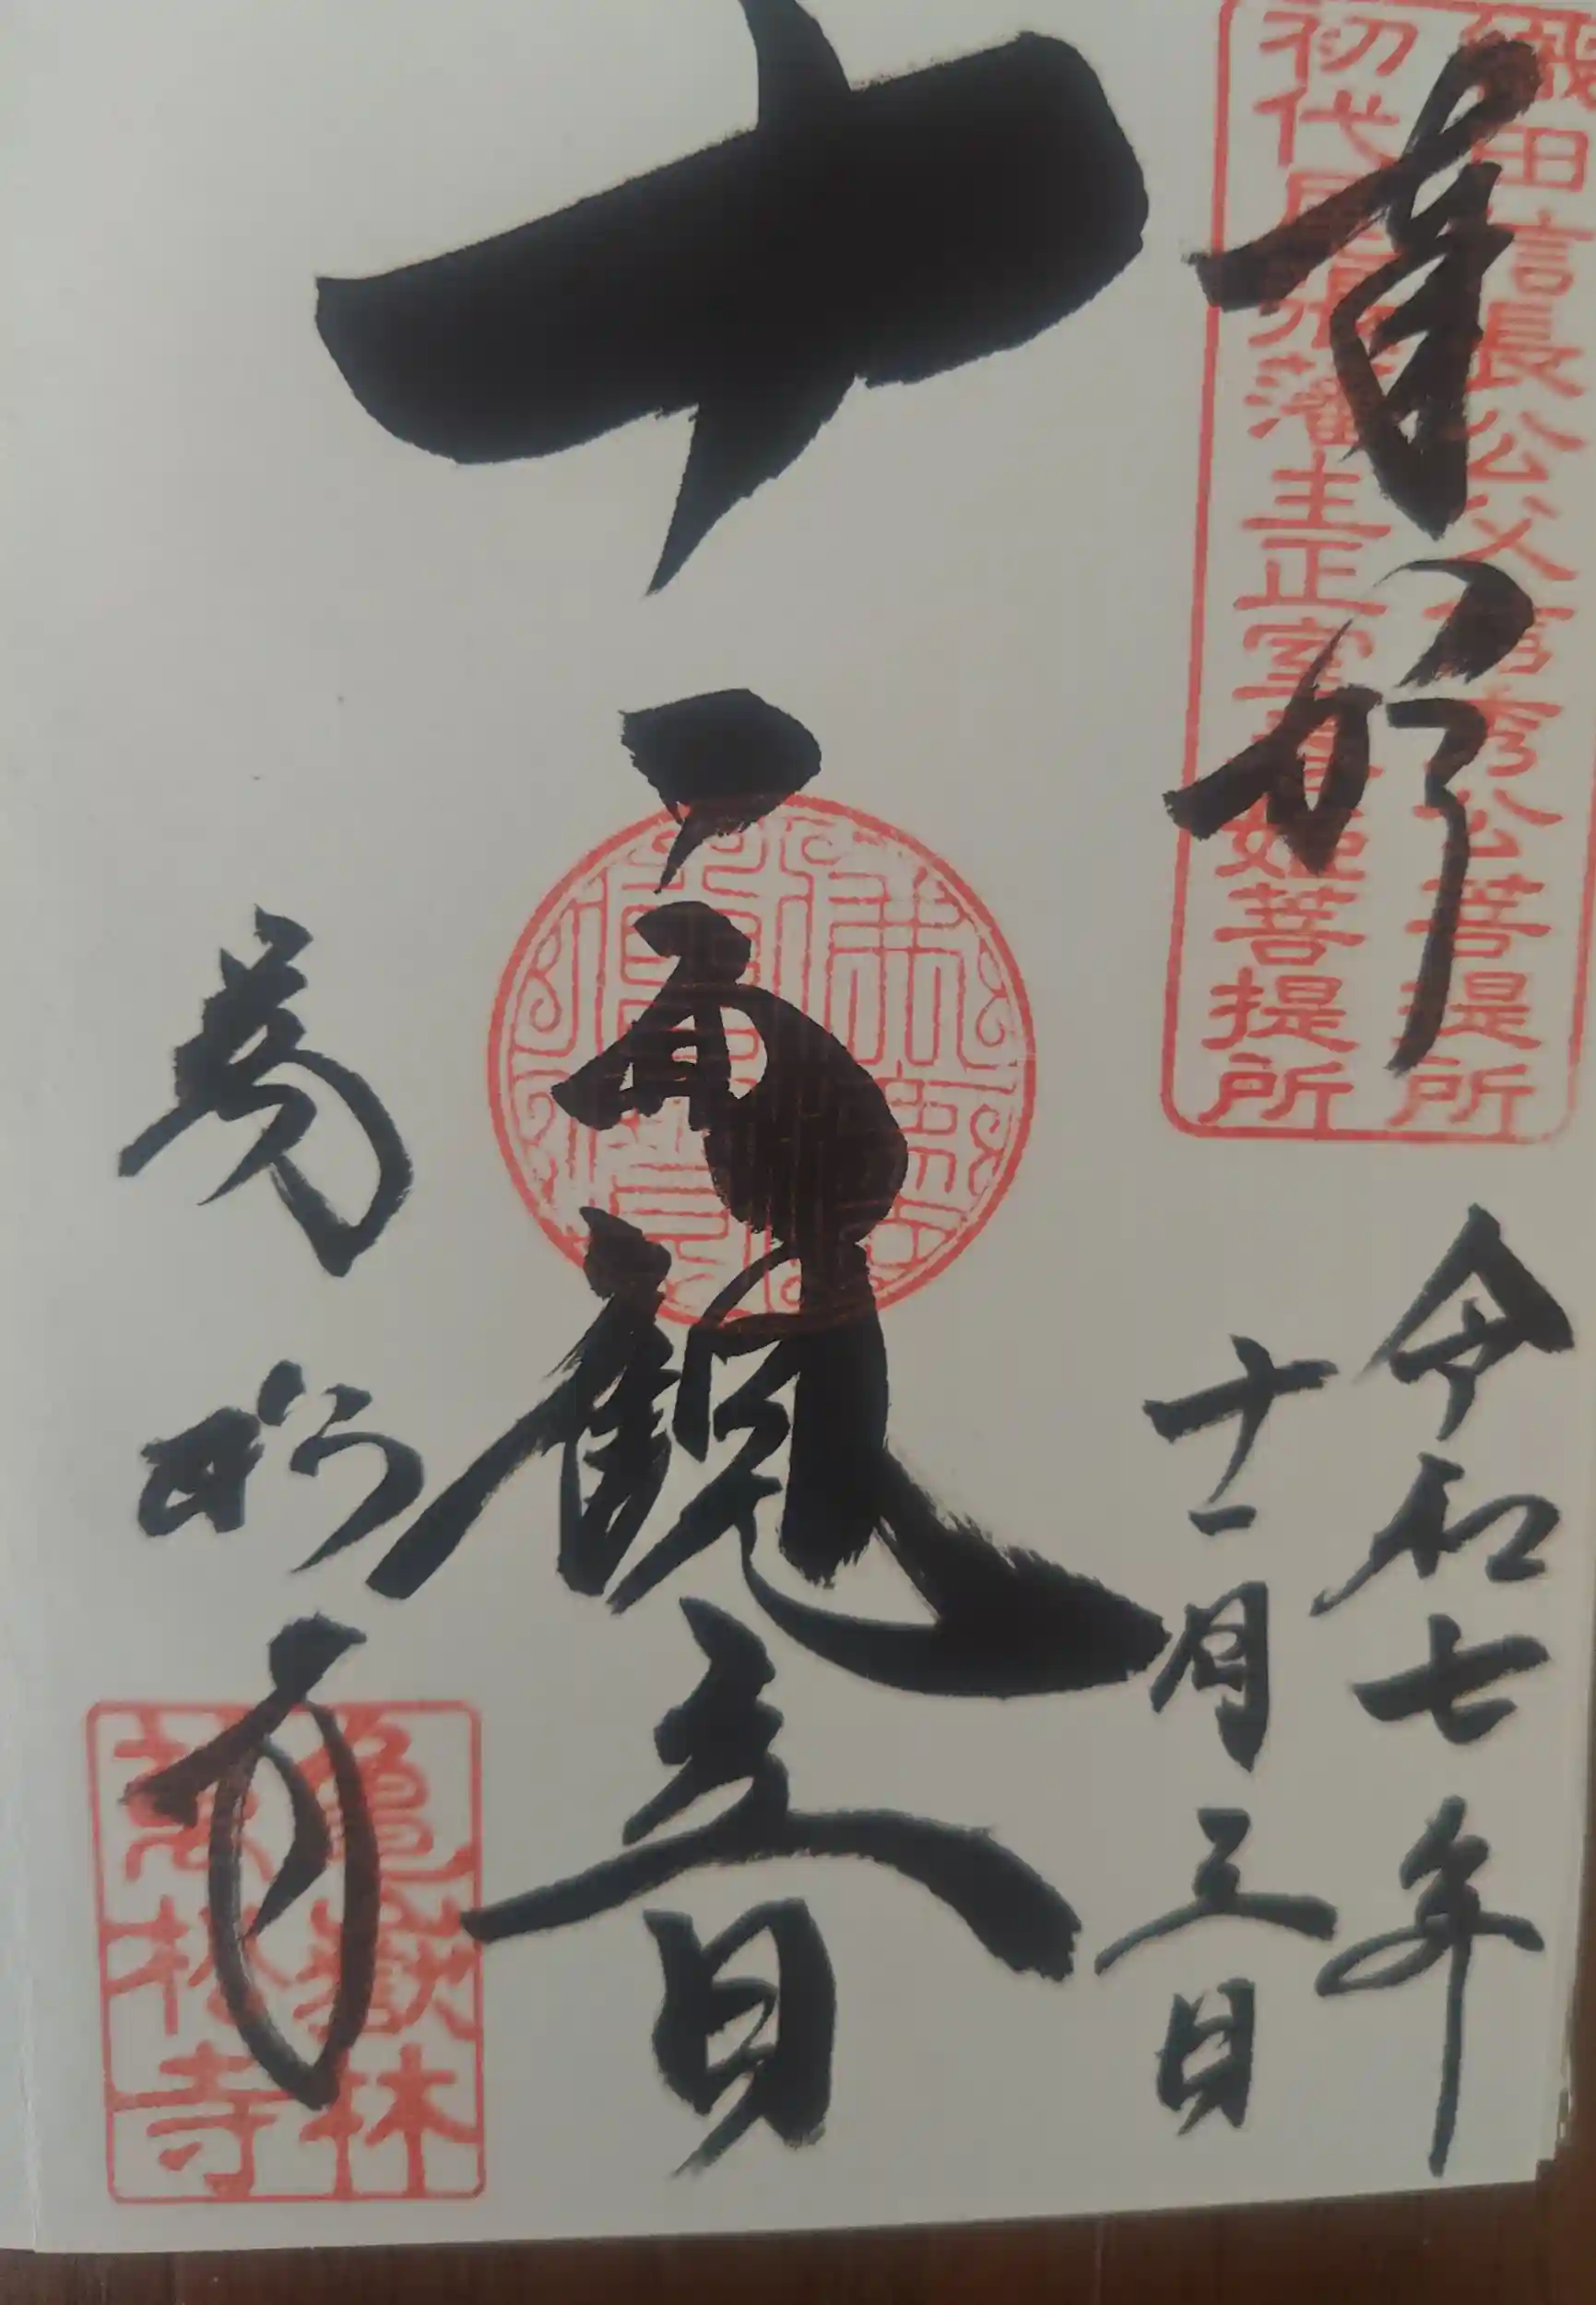 織田信長公父君秀公菩提所
初代尾張藩主正室春姫菩提所
奉拝
令和七年
十一月三日
十一面観音
萬松寺
亀嶽林
萬松寺